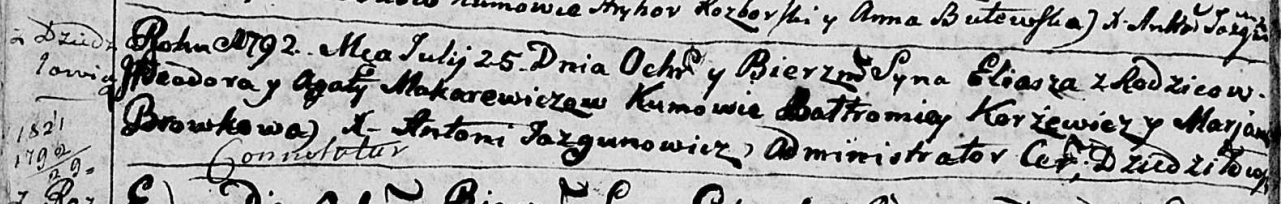 Kumowie Aryhor Kozborski y Anna Butewska) X. Anto:
z Dziedz
Roku 1792. Mca Julij 25. Dnia Ochr: y Bierzm: Syna Eliasza z Rodzicow
Teodora y Agaty Makarewiczow Kumowie Bałtromiey Korżewicz y Marjan
Browkowa) X. Antoni Jazgunowicz Administrator Cer: Dziedziłow:
Connotatur
1821
1792
29